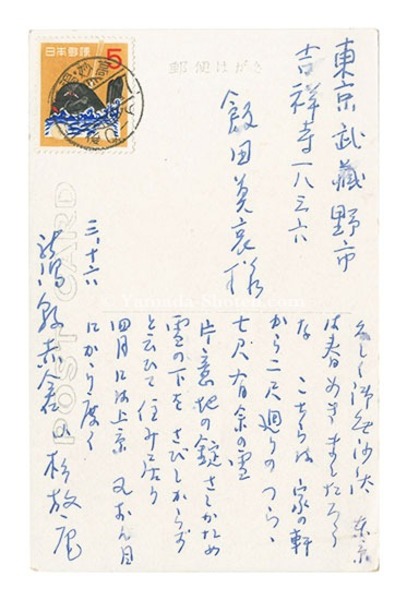 日本郵便
5
郵便はがき
POST CARD
東京武蔵野市
吉祥寺一八三六
飯田莫哀様
久しく御無沙汰 東京
は春めきましたろう
な こちらは 家の軒
から二尺廻りのつらゝ
七尺有余の雪
片意地の錠さしかため
雪の下を さびしからず
と云ひて 住み居り
四月には上京 又お目
にかゝり度く
三、十六
赤倉 山
© Yamada Shoten.com